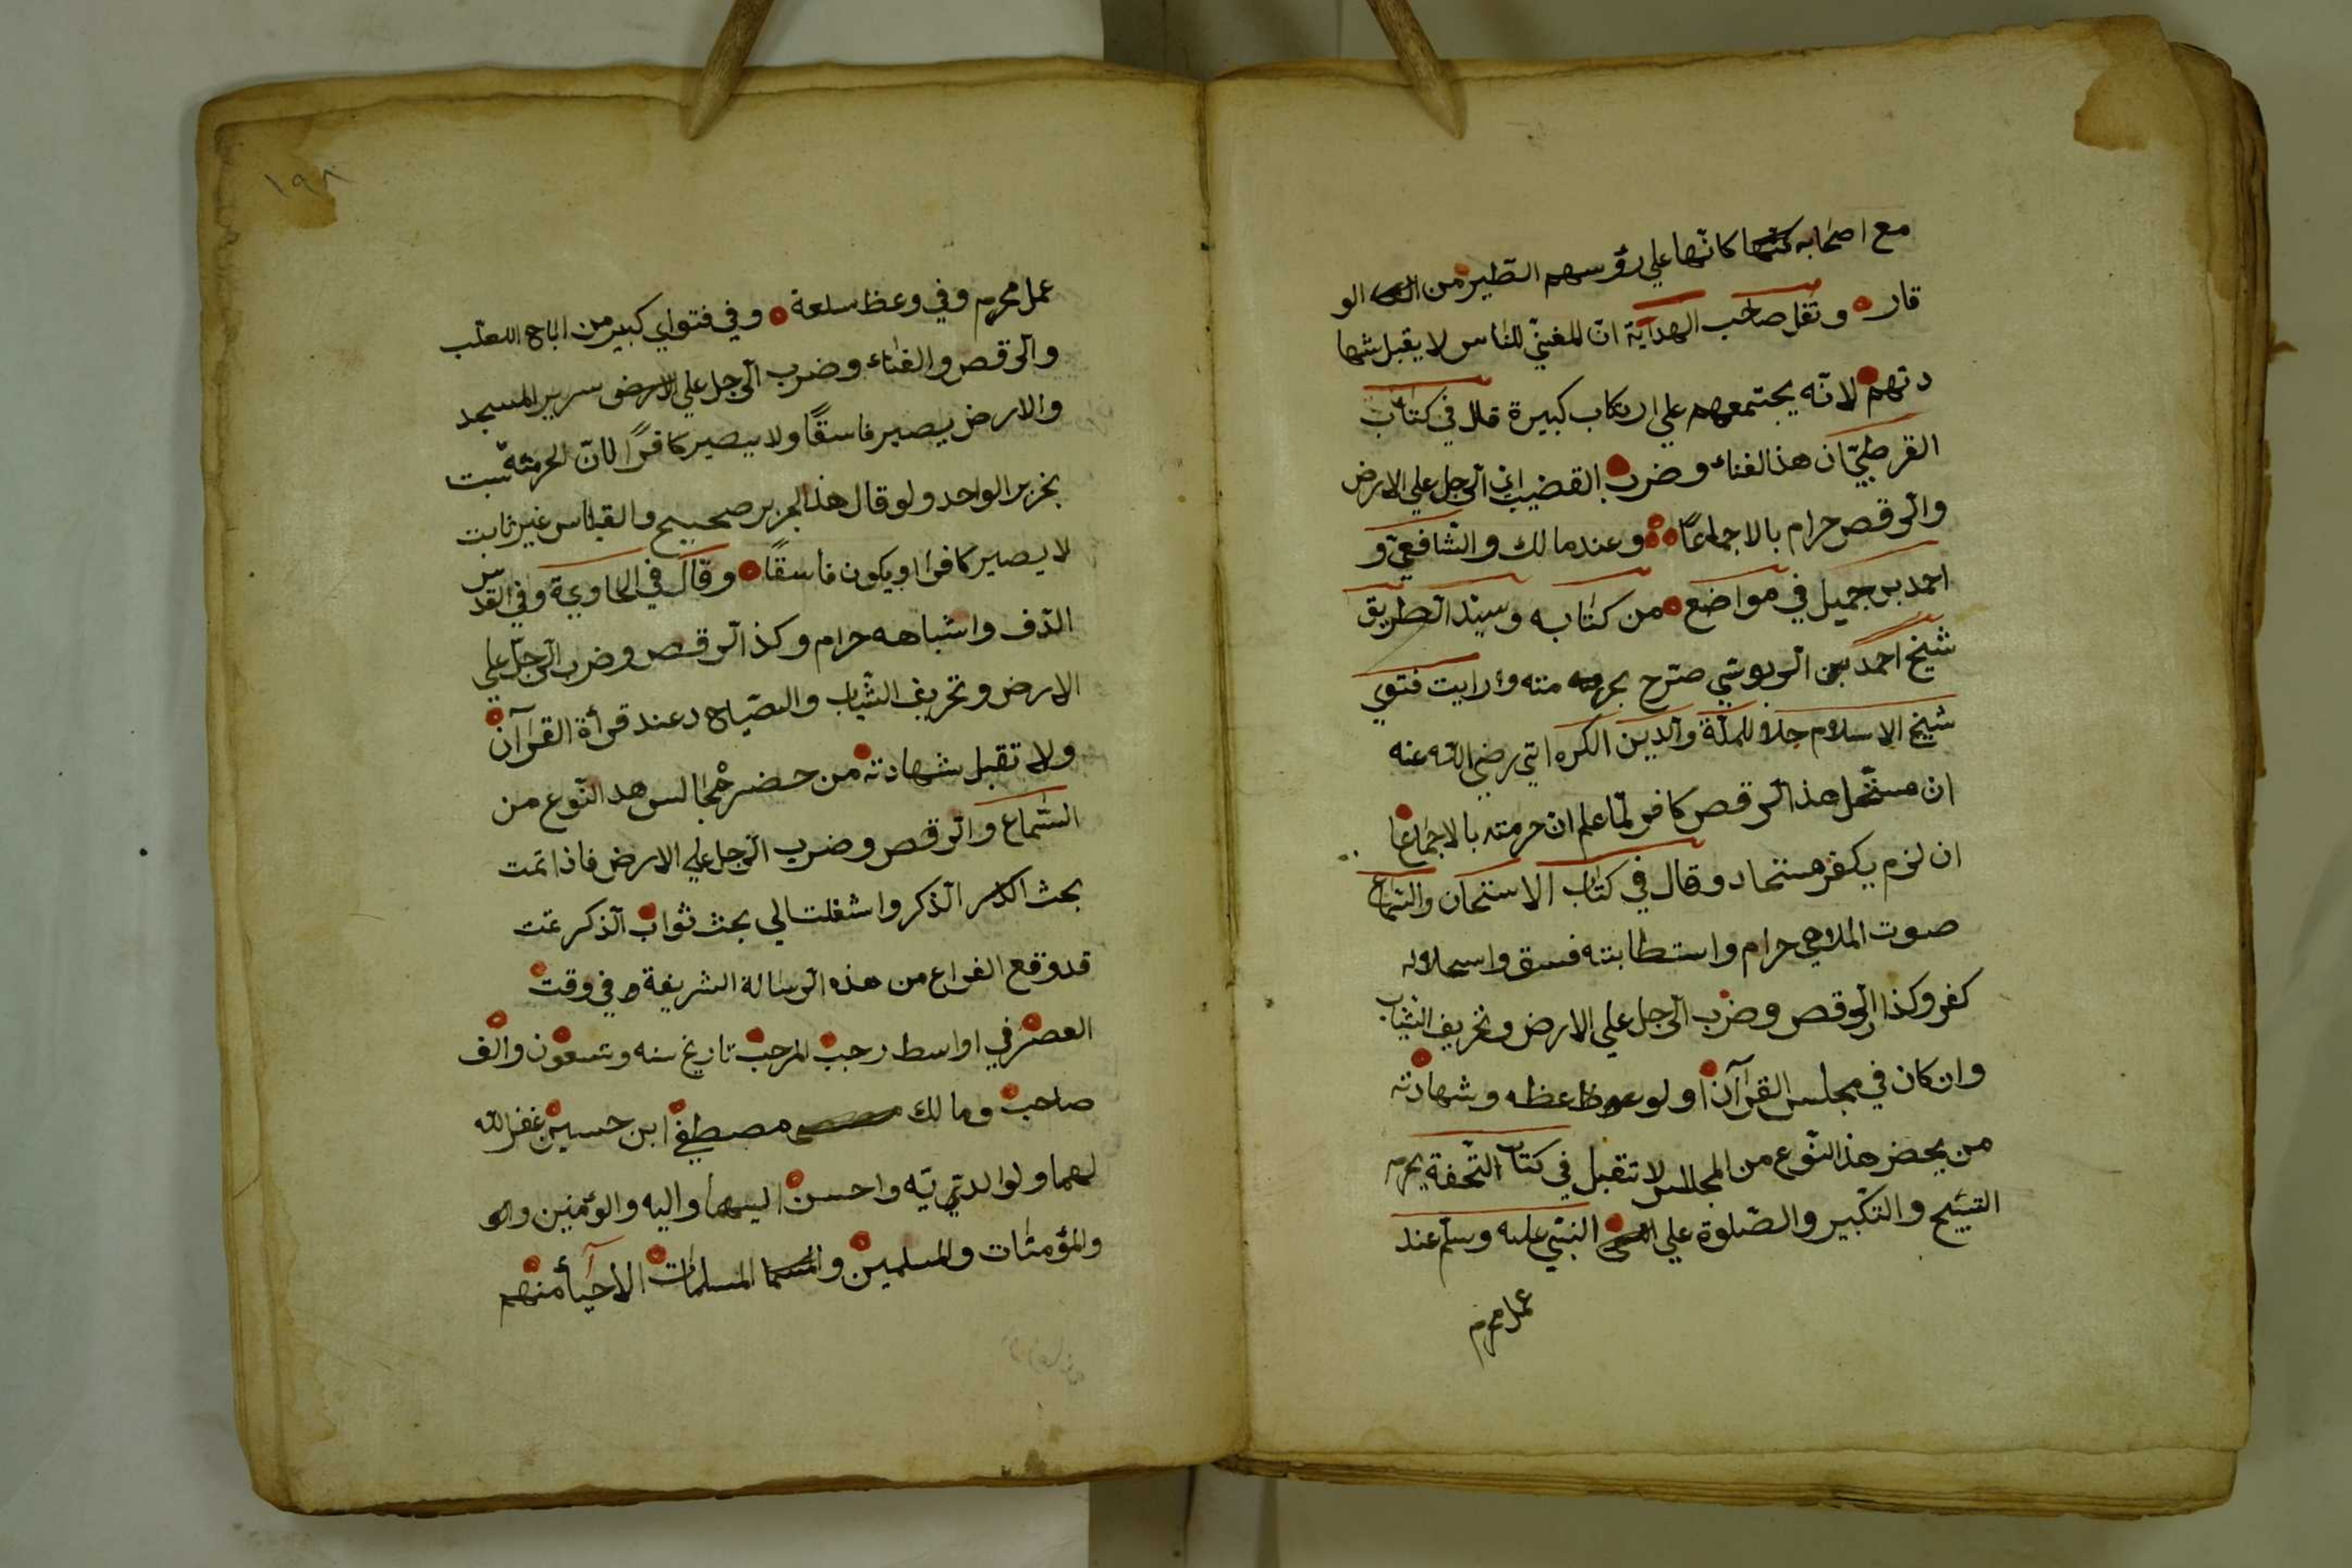 مع اصحابه كانّها علي رؤسهم الطّير من الو
قار ونقل صاحب الهداية انّ المغنيّ للناس لا يقبل شها
دتهم لانّه يجتمعهم علي ارتكاب كبيرة قال في كتاب
القرطبيّ ان هذ الغناء وضرب القضيب الرّجل علي الارض
والرّقص حرام بالاجماعًا وعند مالك والشافعيّ و
احمد بن جميل في مواضع من كتابه وسيّد الطريق
شيخ احمد بن صرّح بحرمته ورايت فتوي
شيخ الاسلام جلال الملّة والدّين الكره اتي رضي اللّه عنه
ان مستحل هذ الرّقص كافر لمّا علم انّ حرمته بالاجماعًا
ان لزم يكفر مستحاد وقال في كتاب الاستحان والسّماع
صوت الملاهي حرام واستطابته فسق واسحلاله
كفر وكذا الرّقص وضرب الرّجل علي الارض وتخريف الثياب
وان كان في مجلس القرآن ولو عظه وشهادته
من يحضر هذ النّوع من المجالس لا تقبل في كتاب التّحفة يحرم
التسبيح والتكبير والصّلوة علي النبيّ عليه وسلّم عند
عمل محرم
١٩٨
عمل محرم وفي وعظ سلعة وفي فتواي كبير من اباح اللعب
والرّقص والغناء وضرب الرّجل علي الارض سرير المسجد
والارض يصير فاسقًا ولا يصير كافرًا لانّ الحرمته ثبت
بخبر الواحد ولو قال هذ الخبر صحيح والقياس غير ثابت
لا يصير كافرا ويكون فاسقًا وقال في الحاوية وفي القدس
الدّف واشباهه حرام وكذ الرّقص وضرب الرّجل علي
الارض وتخريف الثّياب والصّياح عند قرأة القرآن
ولا تقبل شهادته من حضر مجالس هد النّوع من
السّماع والرّقص وضرب الرّجل علي الارض فاذا تمت
بحث الذّكر واشغلت الي بحث ثواب الذّكر تمت
قد وقع الفراع من هذه الرّسالة الشريفة في وقت
العصر في اواسط رجب المرجب تاريخ سنه وتسعون والف
صاحب ومالك مصطفي ابن حسين غفر اللّه
لهما ولوالديّه واحسن اليهما واليه والمؤمنين
والمؤمنات والمسلمين المسلمات الاحيأ منهم